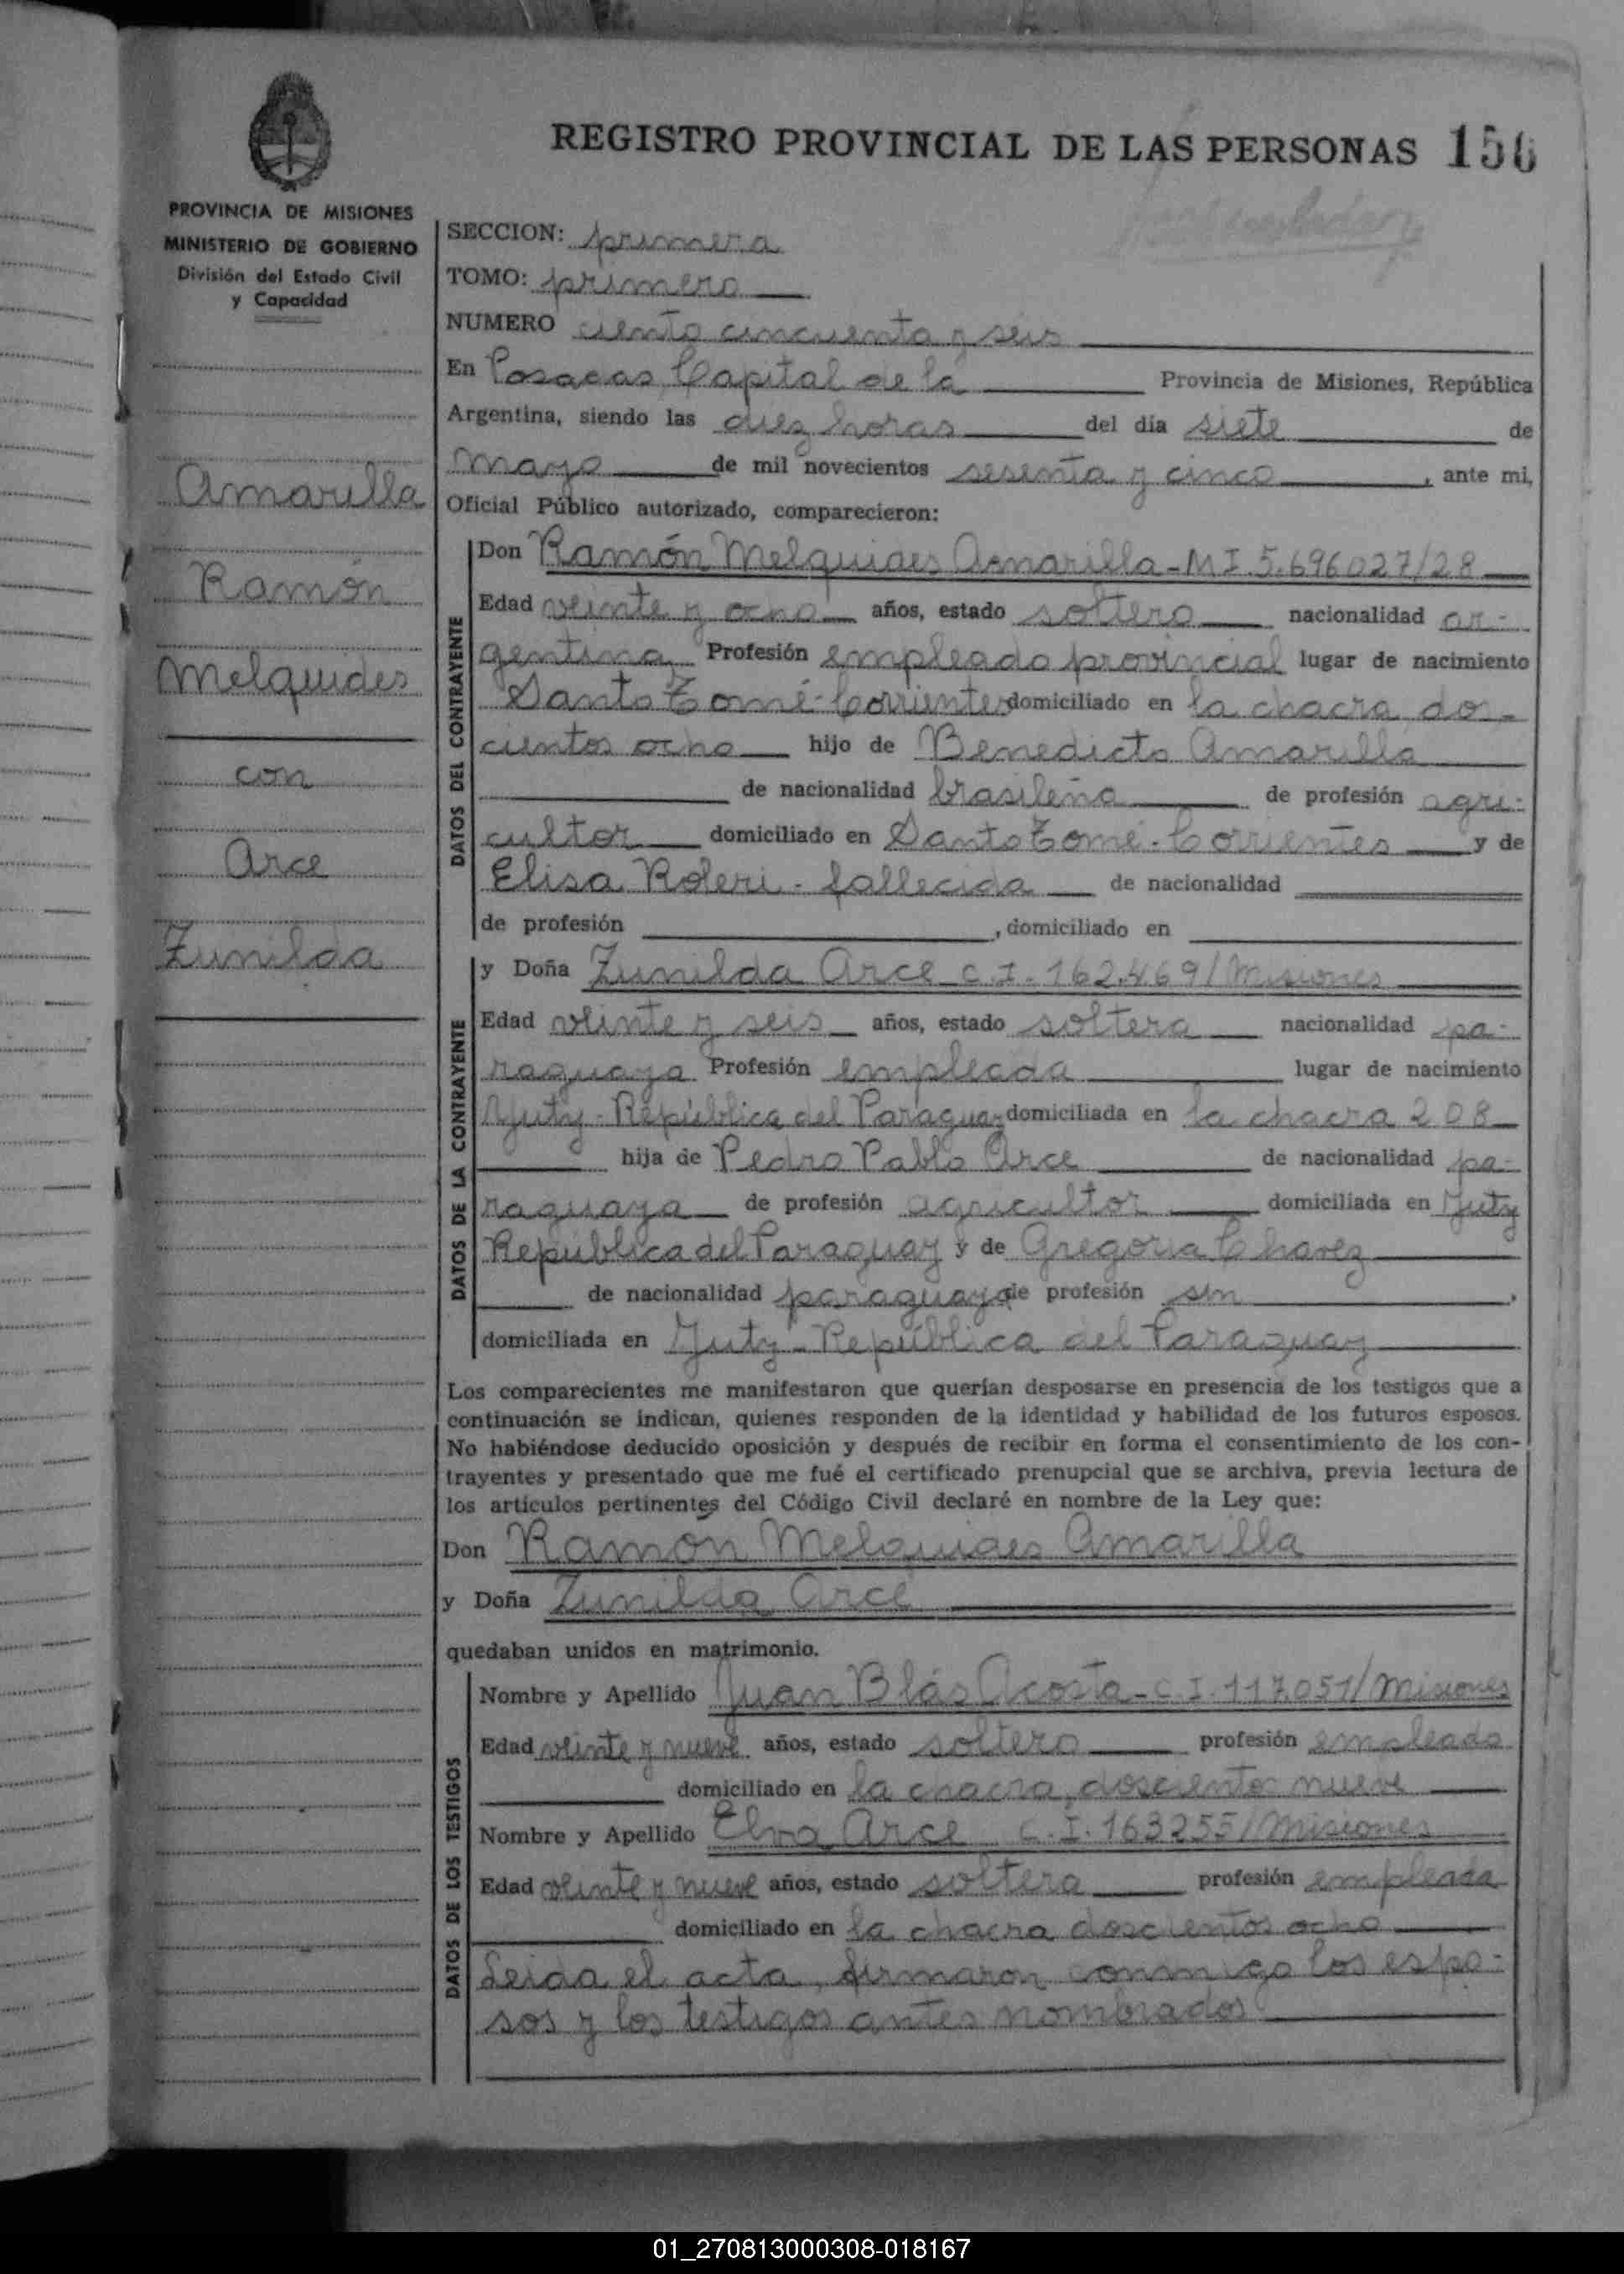 REGISTRO PROVINCIAL DE LAS PERSONAS 156
PROVINCIA DE MISIONES
MINISTERIO DE GOBIERNO
División del Estado Civil
y Capacidad
Amarilla
Ramón
Melquides
con
Arce
Zunilda
SECCION: primera
TOMO: primero
NUMERO ciento cincuenta y seis
En Posadas, Capital de la Provincia de Misiones, República
Argentina, siendo las diez horas del día siete de
mayo de mil novecientos sesenta y cinco, ante mi,
Oficial Público autorizado, comparecieron:
DATOS DEL CONTRAYENTE
Don Ramón Melquides Amarilla - M I. 5.696027/28
Edad veinte y ocho años, estado soltero nacionalidad ar-
gentina Profesión empleado provincial lugar de nacimiento
Santo Tomé - Corrientes domiciliado en la chacra dos-
cientos ocho hijo de Benedicto Amarilla
de nacionalidad brasileña de profesión agri-
cultor domiciliado en Santo Tomé - Corrientes y de
Elisa Roleri - fallecida de nacionalidad
de profesión , domiciliado en
DATOS DE LA CONTRAYENTE
y Doña Zunilda Arce C.I. 162.469/Misiones
Edad veinte y seis años, estado soltera nacionalidad pa-
raguaya Profesión empleada lugar de nacimiento
Yuty - República del Paraguay domiciliada en la chacra 208
hija de Pedro Pablo Arce de nacionalidad pa-
raguaya de profesión agricultor domiciliada en Yuty
República del Paraguay y de Gregoria Chavez
de nacionalidad paraguaya de profesión sin ,
domiciliada en Yuty - República del Paraguay
Los comparecientes me manifestaron que querían desposarse en presencia de los testigos que a
continuación se indican, quienes responden de la identidad y habilidad de los futuros esposos.
No habiéndose deducido oposición y después de recibir en forma el consentimiento de los con-
trayentes y presentado que me fué el certificado prenupcial que se archiva, previa lectura de
los artículos pertinentes del Código Civil declaré en nombre de la Ley que:
Don Ramón Melquides Amarilla
y Doña Zunilda Arce
quedaban unidos en matrimonio.
DATOS DE LOS TESTIGOS
Nombre y Apellido Juan Blás Acosta - C.I. 117.051/Misiones
Edad veinte y nueve años, estado soltero profesión empleado
domiciliado en la chacra doscientos nueve
Nombre y Apellido Elva Arce C.I. 163255/Misiones
Edad veinte y nueve años, estado soltera profesión empleada
domiciliado en la chacra doscientos ocho
Leida el acta, firmaron conmigo los espo-
sos y los testigos antes nombrados
01_270813000308-018167